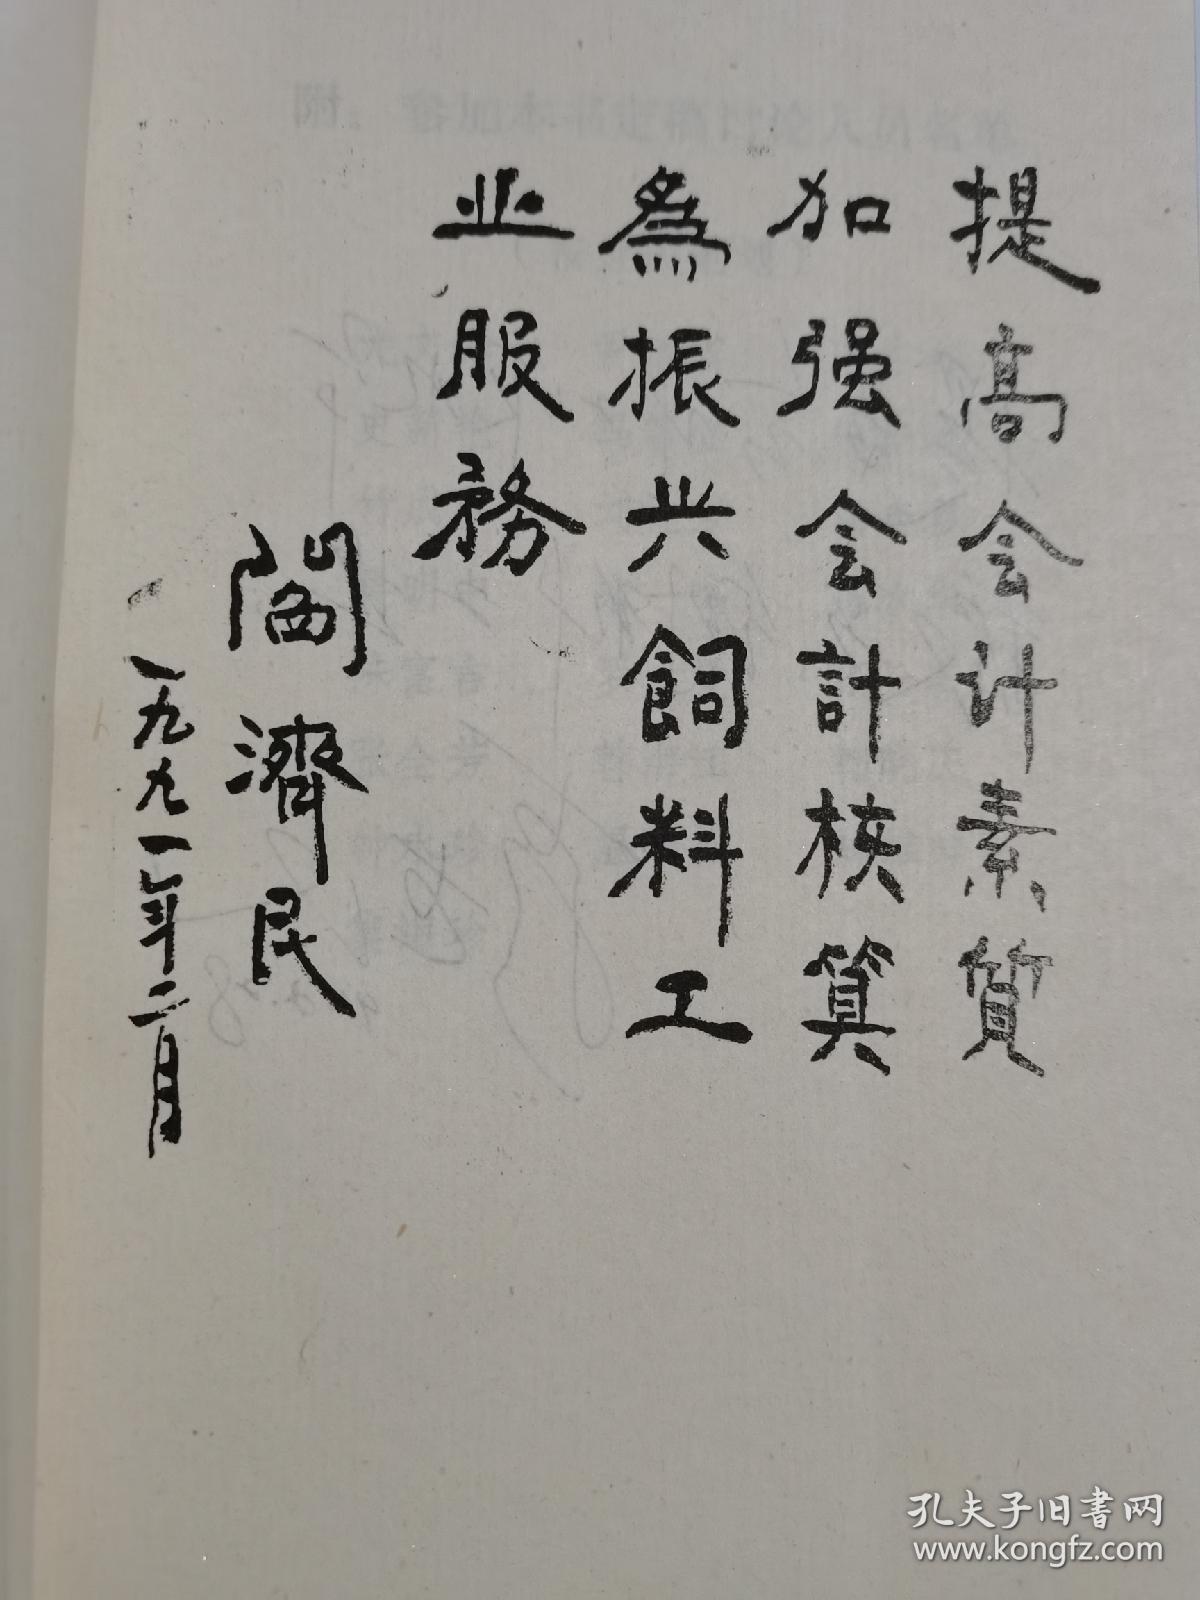 提高会计素质
加强会計核算
為振兴飼料工
业服務
阎濟民
一九九一年二月
孔夫子旧書网
www.kongfz.com